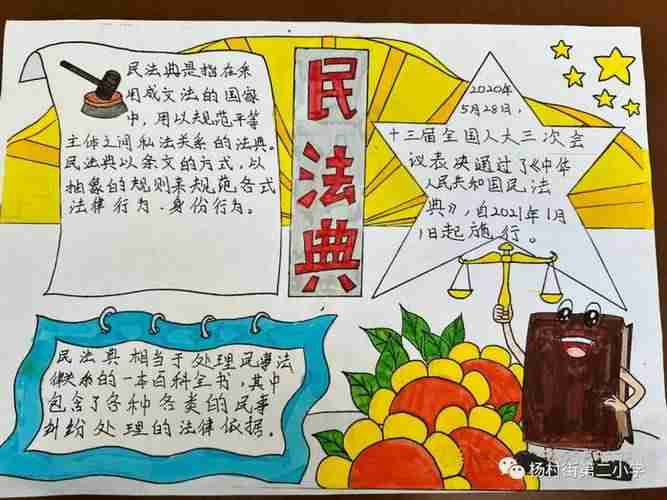 民法典是指在采
用成文法的国家
中，用以规范平等
主体之间私法关系的法典。
民法典以条文的方式，以
抽象的规则来规范各式
法律行为、身份行为。
民法典
2020年
5月28日，
十三届全国人大三次会
议表决通过了《中华
人民共和国民法
典》，自2021年1月
1日起施行。
民法典相当于处理民事法
律关系的一本百科全书，其中
包含了各种各类的民事
纠纷处理的法律依据。
杨村街第二小学